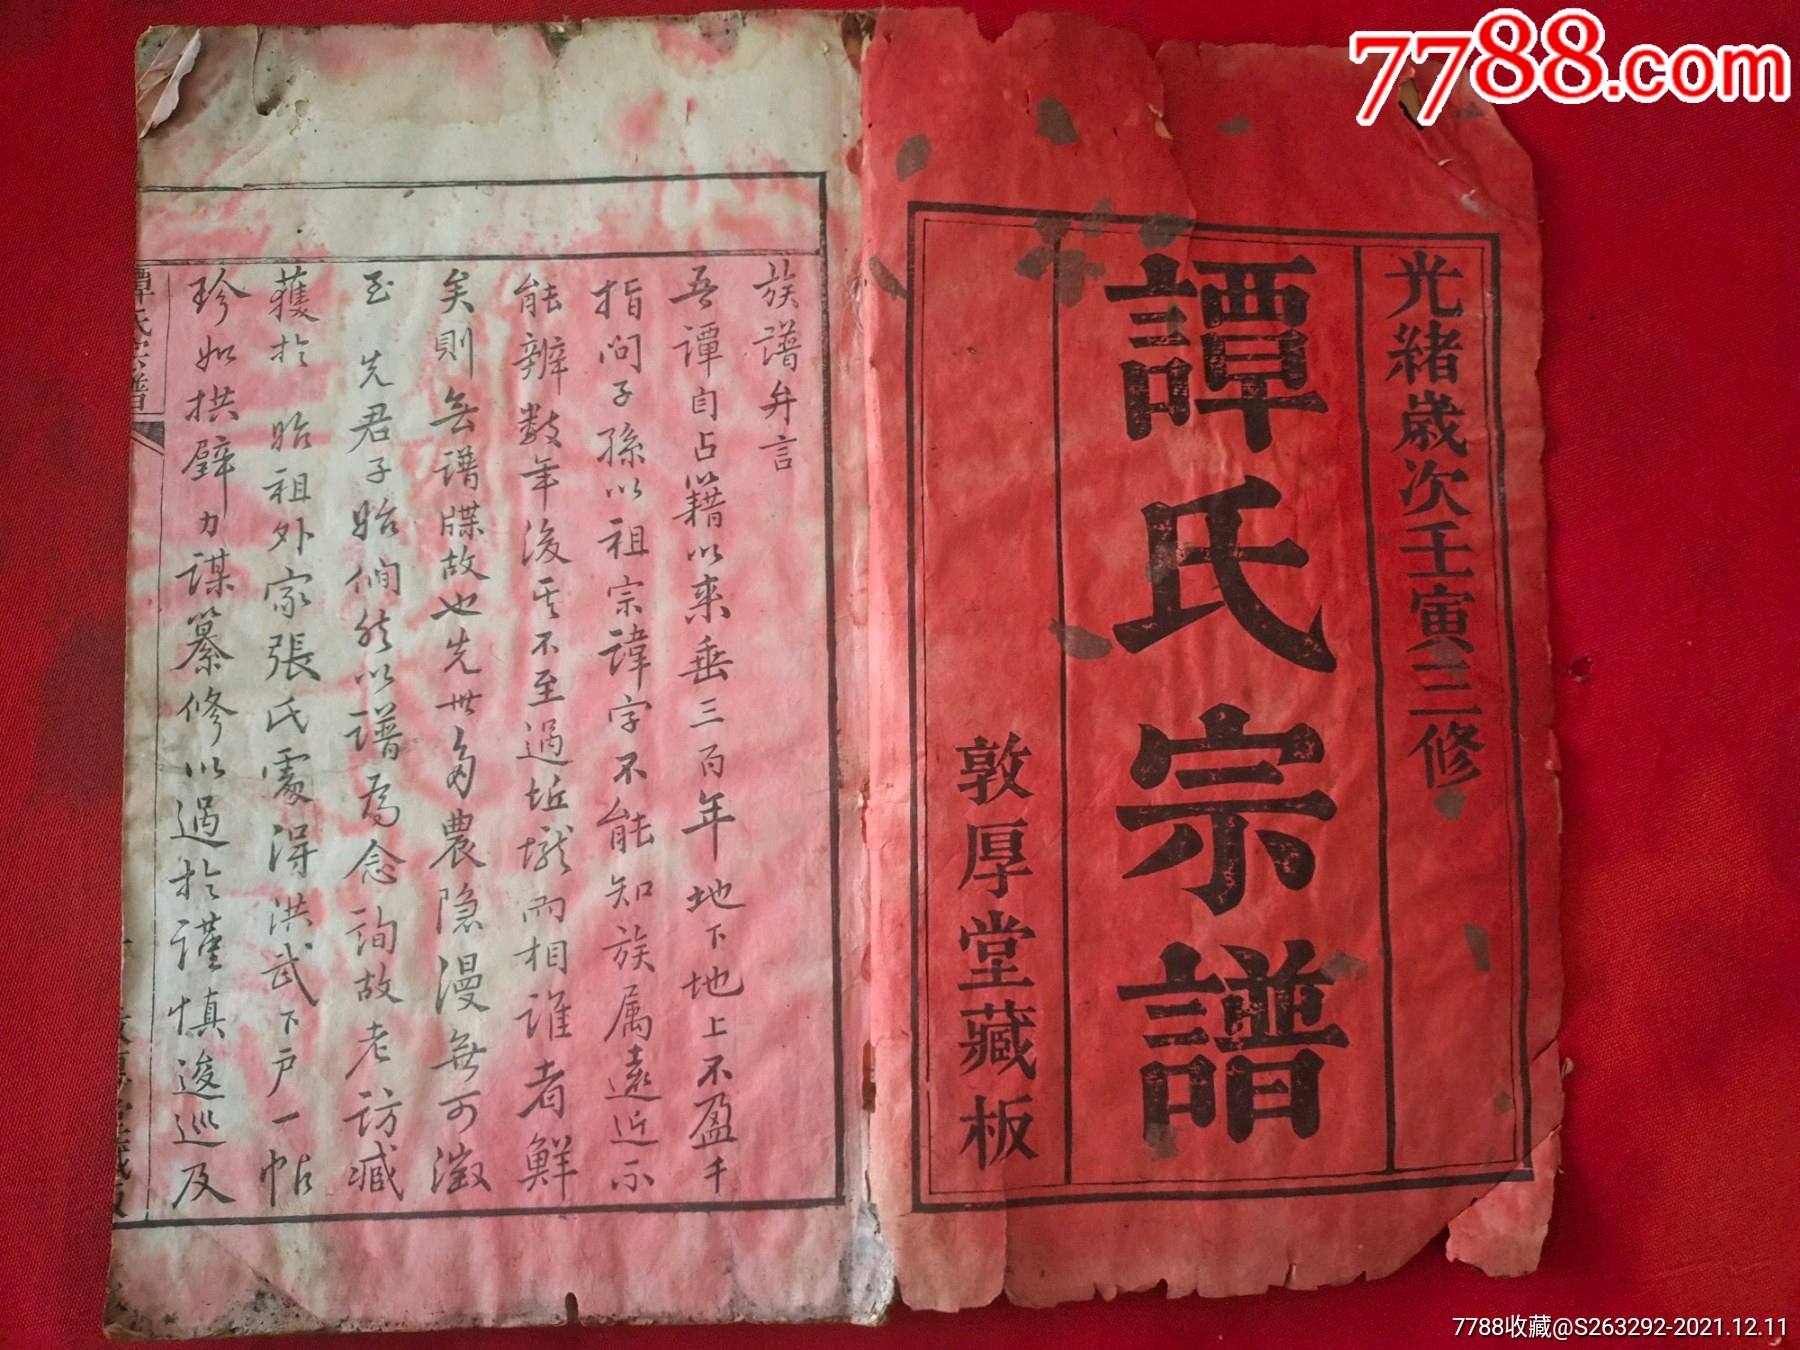 7788.com
光緒歲次壬寅三修
譚氏宗譜
敦厚堂藏板
族譜弁言
吾譚自占籍以來垂三百年地下地上不盈千
指问子孫以祖宗諱字不能知族属遠近不
能辨数年後其不至過坵壠而相誰者鮮
矣則無譜牒故也先世多農隐漫無可徵
至先君子始惻然以譜為念詢故老访臧
獲於貽祖外家張氏處得洪武下户一帖
珍如拱璧力谋纂修以過於谨慎逡巡及
譚氏宗譜
7788收藏@S263292-2021.12.11